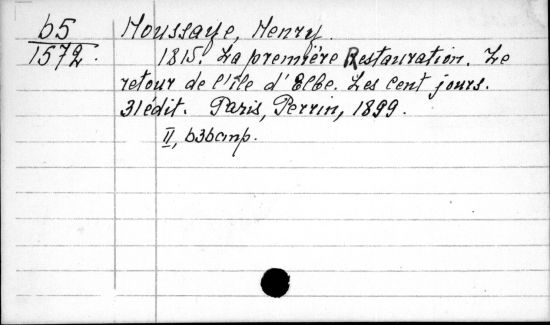 65
1572.
Houssaye, Henry.
1815. La première Restauration. Le
retour de l'île d'Elbe. Les cent jours.
31 édit. Paris, Perrin, 1899.
II, 636 стр.